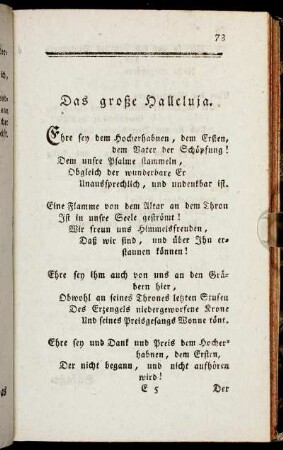 73
Das große Halleluja.
Ehre sey dem Hocherhabnen, dem Ersten,
dem Vater der Schöpfung!
Dem unsre Psalme stammeln,
Obgleich der wunderbare Er
Unaussprechlich, und undenkbar ist.
Eine Flamme von dem Altar an dem Thron
Ist in unsre Seele geströmt!
Wir freun uns Himmelsfreuden,
Daß wir sind, und über Ihn er-
staunen können!
Ehre sey ihm auch von uns an den Grä-
bern hier,
Obwohl an seines Thrones letzten Stufen
Des Erzengels niedergeworfene Krone
Und seines Preisgesangs Wonne tönt.
Ehre sey und Dank und Preis dem Hocher-
habnen, dem Ersten,
Der nicht begann, und nicht aufhören
wird!
E 5 Der